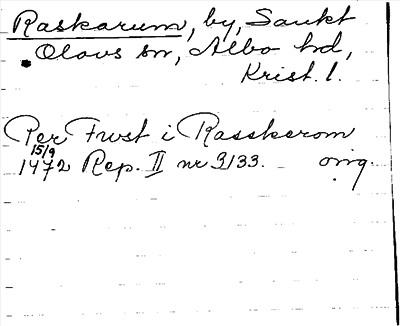 Raskarum, by, Sankt
Olovs sn, Albo hd,
Krist. l.
Per Trvst i Rasskerom
15/9
1472 Rep. II nr 3133. orig.